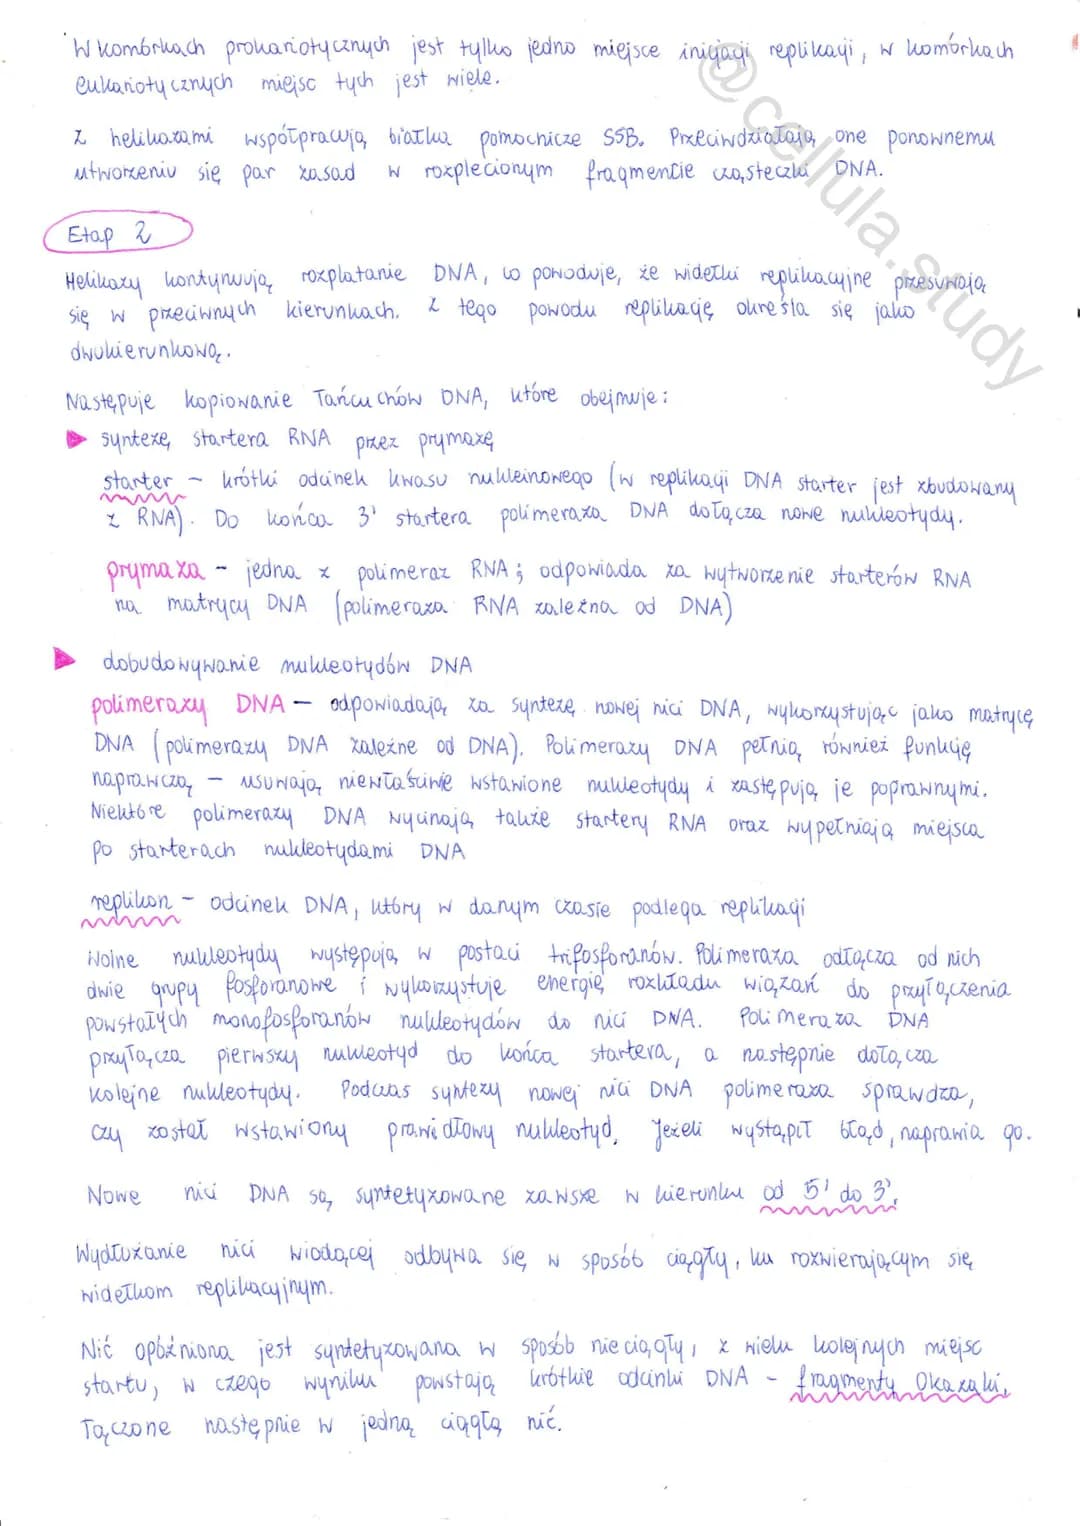 W komórkach prokariotycznych jest tylko jedno miejsce inicjacji replikacji, w komórkach
eukariotycznych miejsc tych jest wiele.
Z helikazami współpracują białka pomocnicze SSB. Przeciwdziałają one ponownemu
utworzeniu się par zasad w rozplecionym fragmencie cząsteczki DNA.
@cellula.study
Etap 2
Helikazy kontynuują rozplatanie DNA, co powoduje, że widełki replikacyjne przesuwają
się w przeciwnych kierunkach. Z tego powodu replikację określa się jako
dwukierunkową.
Następuje kopiowanie łańcuchów DNA, które obejmuje:
syntezę startera RNA przez prymazę
starter - krótki odcinek kwasu nukleinowego (w replikacji DNA starter jest zbudowany
z RNA). Do końca 3' startera polimeraza DNA dołącza nowe nukleotydy.
prymaza - jedna z polimeraz RNA; odpowiada za wytworzenie starterów RNA
na matrycy DNA (polimeraza RNA zależna od DNA)
dobudowywanie nukleotydów DNA
polimerazy DNA - odpowiadają za syntezę nowej nici DNA, wykorzystując jako matrycę
DNA (polimerazy DNA zależne od DNA). Polimerazy DNA pełnią również funkcję
naprawczą - usuwają niewłaściwie wstawione nukleotydy i zastępują je poprawnymi.
Niektóre polimerazy DNA wycinają także startery RNA oraz wypełniają miejsca
po starterach nukleotydami DNA
replikon - odcinek DNA, który w danym czasie podlega replikacji
Wolne nukleotydy występują w postaci trifosforanów. Polimeraza odłącza od nich
dwie grupy fosforanowe i wykorzystuje energię rozkładu wiązań do przyłączenia
powstałych monofosforanów nukleotydów do nici DNA. Polimeraza DNA
przyłącza pierwszy nukleotyd do końca startera, a następnie dołącza
kolejne nukleotydy. Podczas syntezy nowej nici DNA polimeraza sprawdza,
czy został wstawiony prawidłowy nukleotyd. Jeżeli wystąpił błąd, naprawia go.
Nowe nici DNA są syntetyzowane zawsze w kierunku od 5' do 3'.
Wydłużanie nici wiodącej odbywa się w sposób ciągły, ku rozwierającym się
widełkom replikacyjnym.
Nić opóźniona jest syntetyzowana w sposób nieciągły, z wielu kolejnych miejsc
startu, w czego wyniku powstają krótkie odcinki DNA - fragmenty Okazaki,
łączone następnie w jedną ciągłą nić.